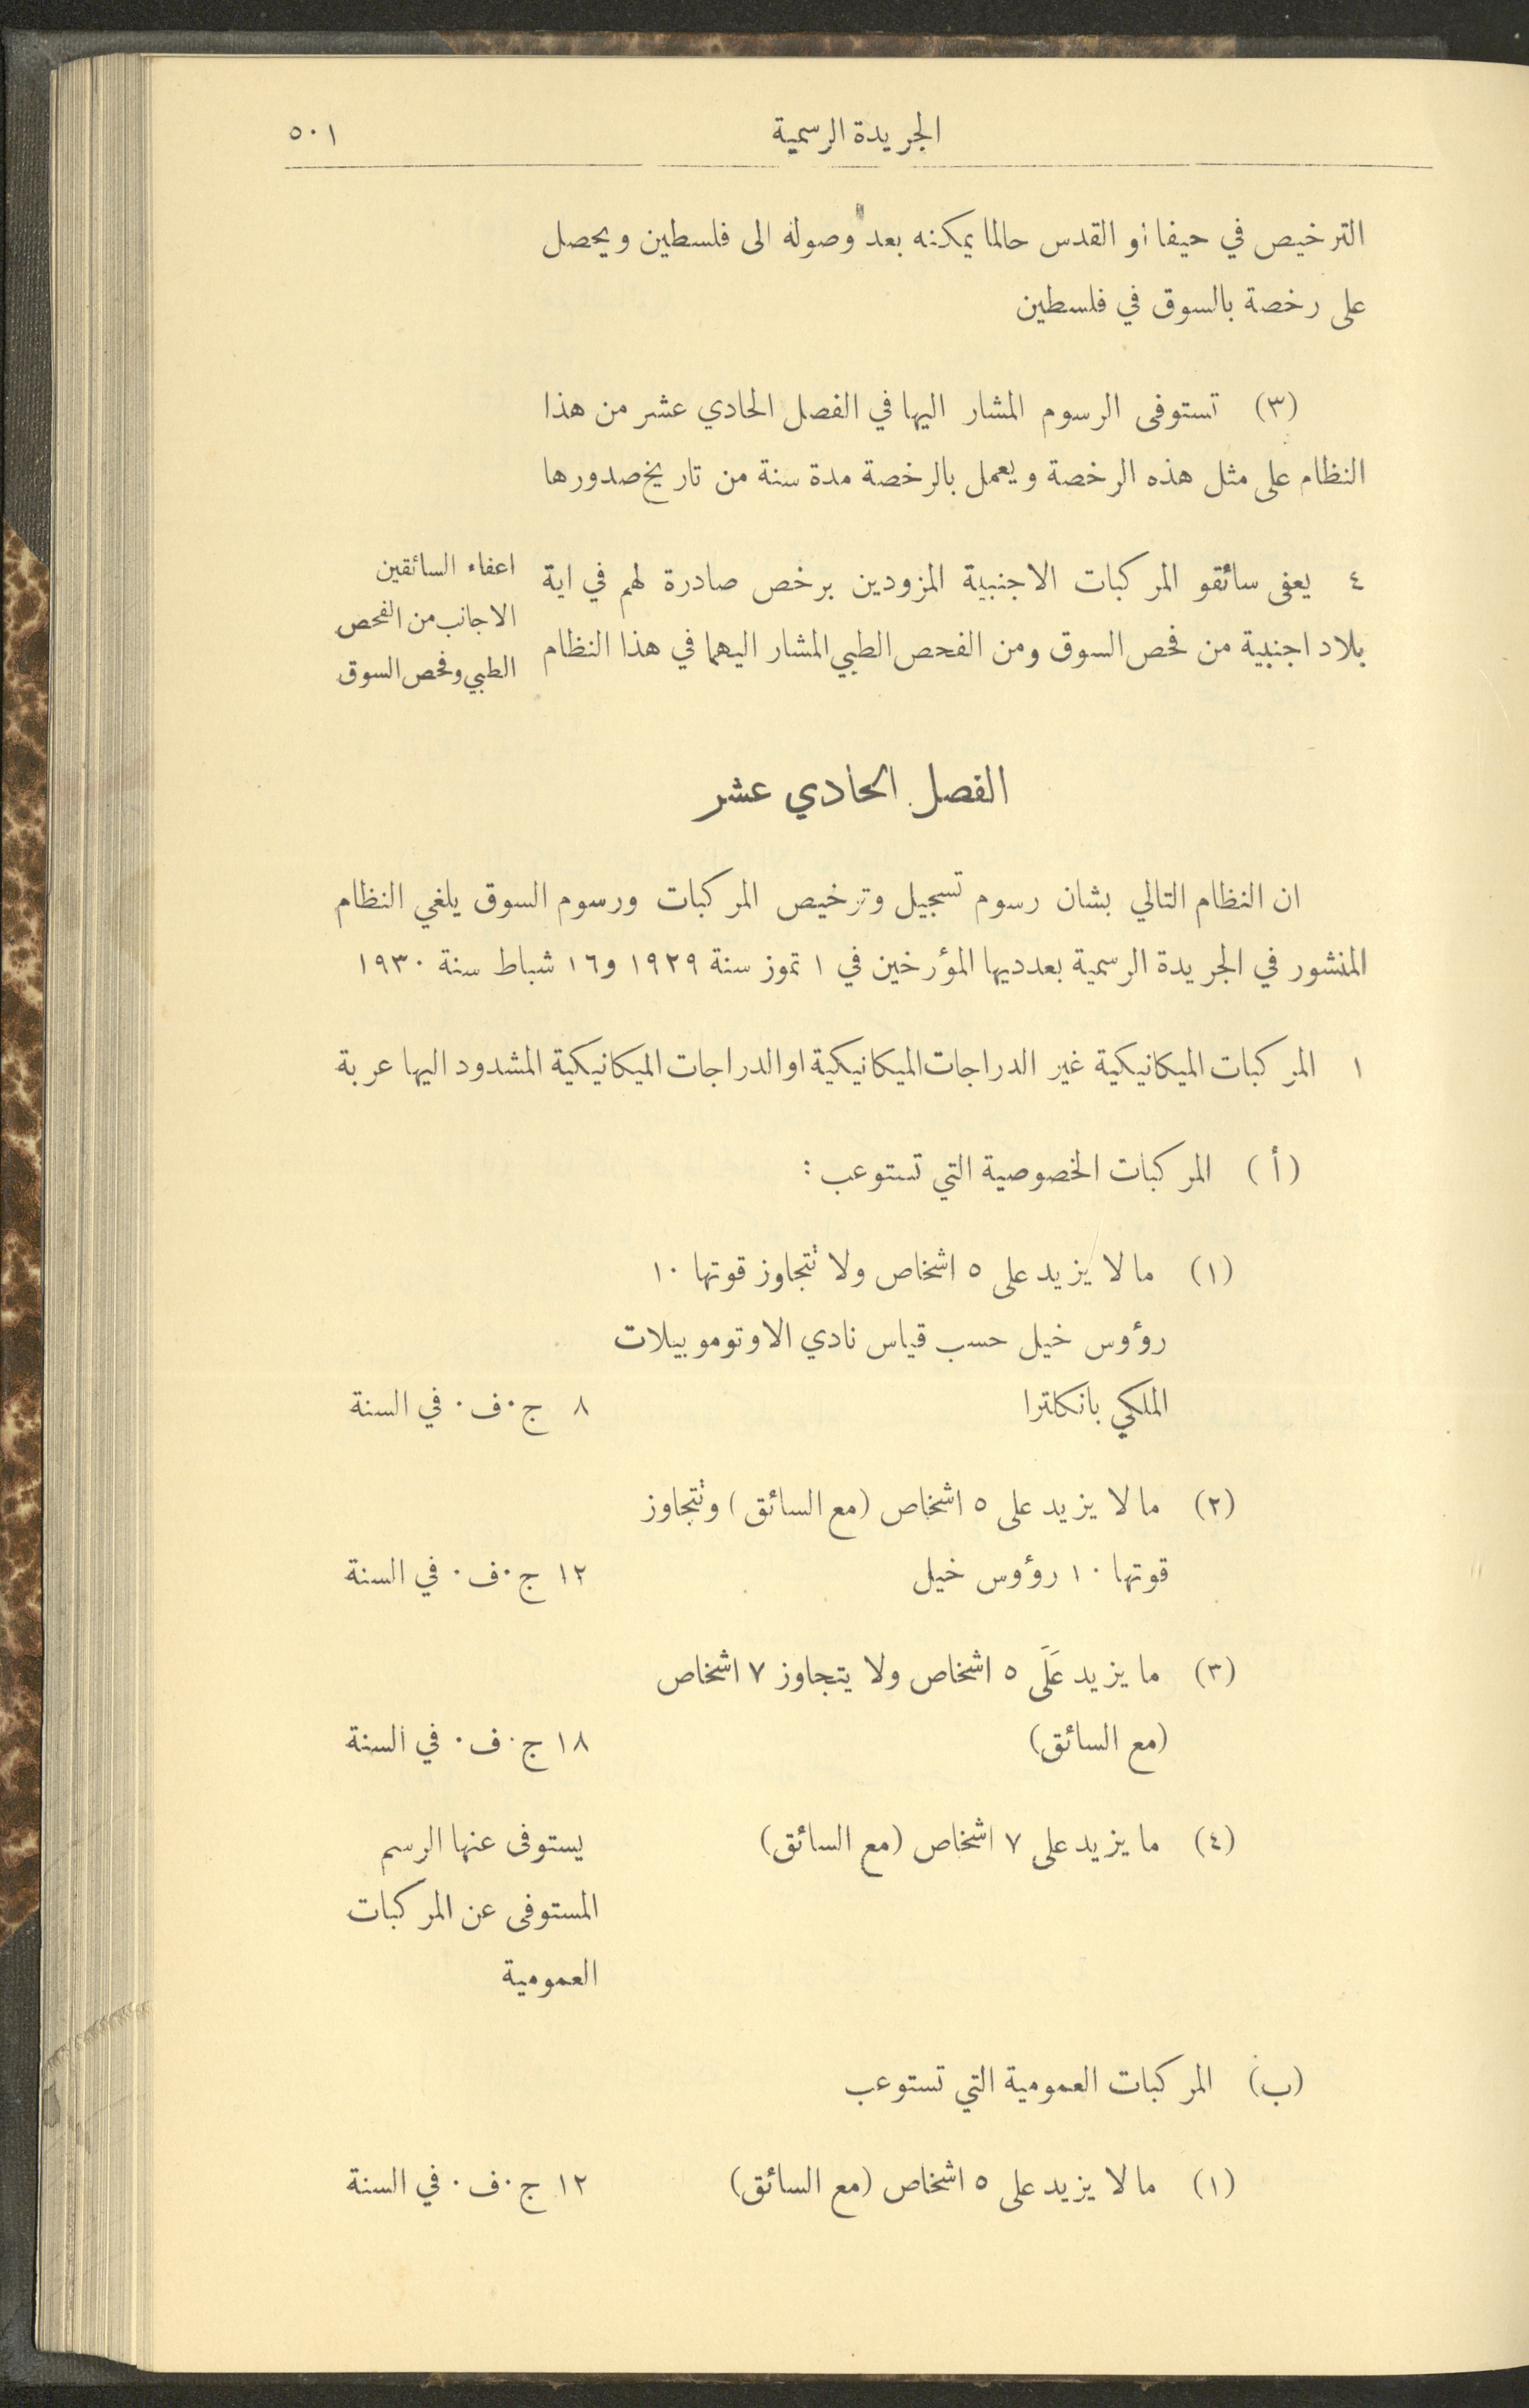 الجريدة الرسمية ٥٠١
الترخيص في حيفا او القدس حالما يمكنه بعد وصوله الى فلسطين ويحصل
على رخصة بالسوق في فلسطين
(٣) تستوفى الرسوم المشار اليها في الفصل الحادي عشر من هذا
النظام على مثل هذه الرخصة ويعمل بالرخصة مدة سنة من تاريخ صدورها
٤ يعفى سائقو المركبات الاجنبية المزودين برخص صادرة لهم في اية
بلاد اجنبية من فحص السوق ومن الفحص الطبي المشار اليهما في هذا النظام
اعفاء السائقين
الاجانب من الفحص
الطبي وفحص السوق
الفصل الحادي عشر
ان النظام التالي بشان رسوم تسجيل وترخيص المركبات ورسوم السوق يلغي النظام
المنشور في الجريدة الرسمية بعدديها المؤرخين في ١ تموز سنة ١٩٢٩ و١٦ شباط سنة ١٩٣٠
١ المركبات الميكانيكية غير الدراجات الميكانيكية او الدراجات الميكانيكية المشدود اليها عربة
(أ) المركبات الخصوصية التي تستوعب :
(١) ما لا يزيد على ٥ اشخاص ولا تتجاوز قوتها ١٠
رؤوس خيل حسب قياس نادي الاوتوموبيلات
الملكي بانكلترا ٨ ج٠ف٠ في السنة
(٢) ما لا يزيد على ٥ اشخاص (مع السائق) وتتجاوز
قوتها ١٠ رؤوس خيل ١٢ ج٠ف٠ في السنة
(٣) ما يزيد عَلَى ٥ اشخاص ولا يتجاوز ٧ اشخاص
(مع السائق) ١٨ ج٠ف٠ في السنة
(٤) ما يزيد على ٧ اشخاص (مع السائق) يستوفى عنها الرسم
المستوفى عن المركبات
العمومية
(ب) المركبات العمومية التي تستوعب
(١) ما لا يزيد على ٥ اشخاص (مع السائق) ١٢ ج٠ف٠ في السنة